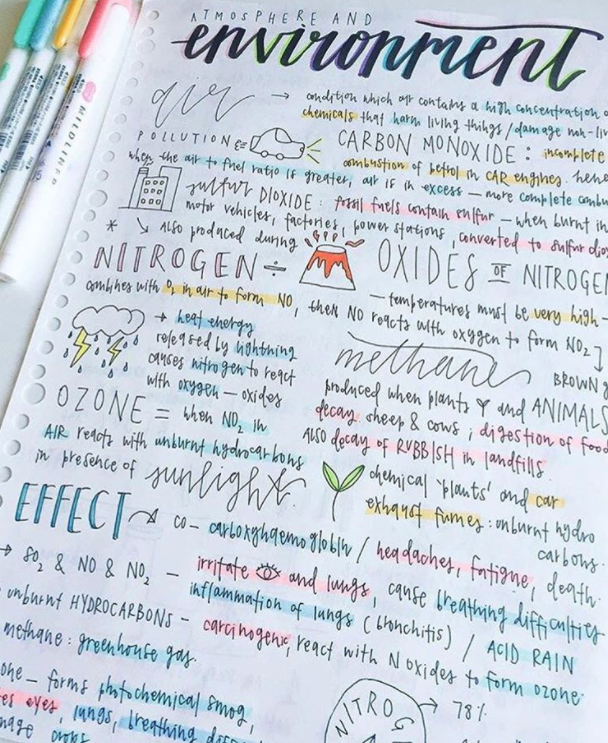 ATMOSPHERE AND
environment
air → condition which air contains a high concentration o
chemicals that harm living things / damage non-li
POLLUTION CARBON MONOXIDE : incomplete
combustion of petrol in CAR engines. hence
when the air to fuel ratio is greater, air is in excess — more complete combu
sulfur DIOXIDE : fossil fuels contain sulfur — when burnt in
motor vehicles, factories, power stations, converted to sulfur diox
* ↘ ALSO produced during
NITROGEN ÷ OXIDES OF NITROGEN
combines with O₂ in air to form NO, then NO reacts with oxygen to form NO₂
— temperatures must be very high —
→ heat energy
released by lightning
causes nitrogen to react
with oxygen — oxides
methane
BROWN g
produced when plants and ANIMALS
decay, sheep & cows ; digestion of food
ALSO decay of RUBBISH in landfills.
OZONE = when NO₂ in
AIR reacts with unburnt hydrocarbons
in presence of sunlight.
chemical 'plants' and car
exhaust fumes : unburnt hydro
carbons.
EFFECT CO — carboxyhaemoglobin / headaches, fatigue, death.
→ SO₂ & NO & NO₂ — irritate and lungs, cause breathing difficulties
inflammation of lungs (bronchitis) / ACID RAIN
unburnt HYDROCARBONS — carcinogenic, react with N oxides to form ozone.
methane : greenhouse gas.
one — forms photochemical smog,
es eyes, lungs, breathing diff
mage crops
NITROG → 78%
MILDLINER